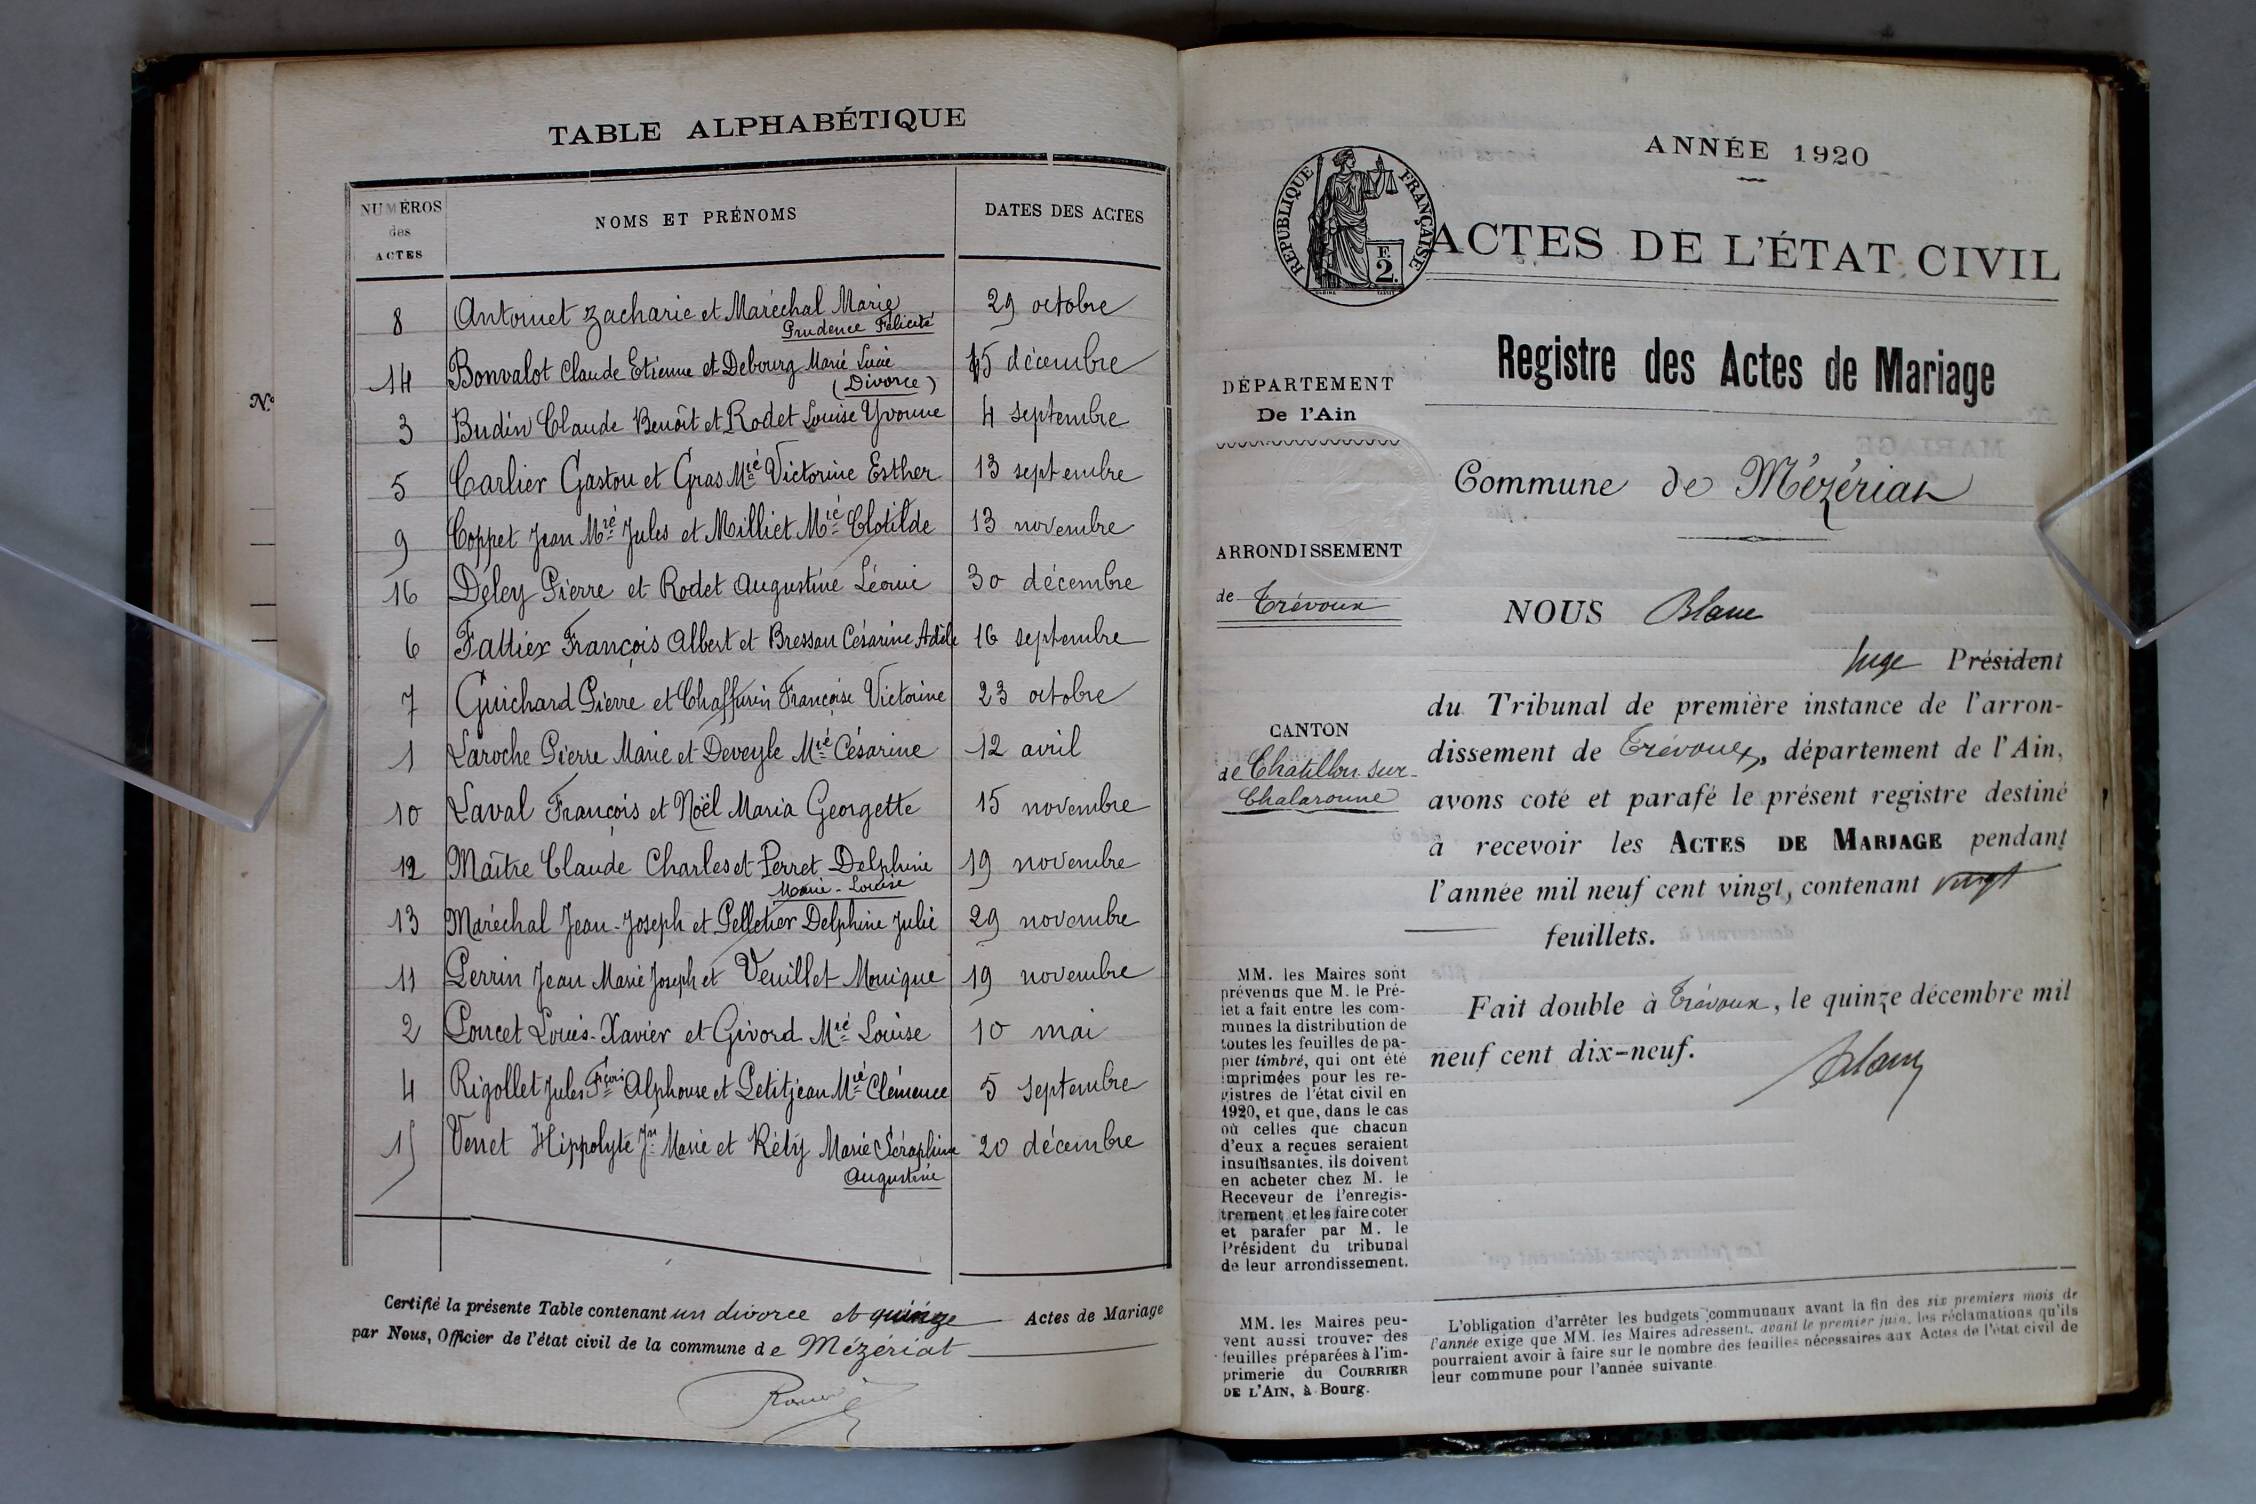 TABLE ALPHABÉTIQUE
NUMÉROS
des
ACTES
NOMS ET PRÉNOMS
DATES DES ACTES
8 Antoinet Zacharie et Maréchal Marie 29 octobre
Prudence Félicité
14 Bonvalot Claude Etienne et Debourg Marie Lucie 15 décembre
(Divorce)
3 Budin Claude Benoît et Rodet Louise Yvonne 4 septembre
5 Carlier Gaston et Gras Mie Victorine Esther 13 septembre
9 Coppet Jean Mie Jules et Milliet Mie Clotilde 13 novembre
16 Deley Pierre et Rodet Augustine Léonie 30 décembre
6 Fattier François Albert et Bressan Césarine Adèle 16 septembre
7 Guichard Pierre et Chaffurin Françoise Victorine 23 octobre
1 Laroche Pierre Marie et Deveyle Mie Césarine 12 avril
10 Laval François et Noël Maria Georgette 15 novembre
12 Maître Claude Charles et Perret Delphine 19 novembre
Marie-Louise
13 Maréchal Jean-Joseph et Pelletier Delphine Julie 29 novembre
11 Perrin Jean Marie Joseph et Veuillet Monique 19 novembre
2 Poncet Louis-Xavier et Givord Mie Louise 10 mai
4 Rigollet Jules Alphonse et Petitjean Mie Clémence 5 septembre
15 Venet Hippolyte Jn Marie et Rély Marie Séraphine 20 décembre
Augustine
Certifié la présente Table contenant un divorce et quinze Actes de Mariage
par Nous, Officier de l'état civil de la commune de Mézériat
N°
ANNÉE 1920
RÉPUBLIQUE FRANÇAISE
F.
2.
ACTES DE L'ÉTAT CIVIL
Registre des Actes de Mariage
DÉPARTEMENT
De l'Ain
Commune de Mézériat
ARRONDISSEMENT
de Trévoux
CANTON
de Chatillon-sur-
Chalaronne
NOUS Blanc
Juge Président
du Tribunal de première instance de l'arron-
dissement de Trévoux, département de l'Ain,
avons coté et parafé le présent registre destiné
à recevoir les ACTES DE MARIAGE pendant
l'année mil neuf cent vingt, contenant vingt
feuillets.
Fait double à Trévoux, le quinze décembre mil
neuf cent dix-neuf.
Blanc
MM. les Maires sont
prévenus que M. le Pré-
fet a fait entre les com-
munes la distribution de
toutes les feuilles de pa-
pier timbré, qui ont été
imprimées pour les re-
gistres de l'état civil en
1920, et que, dans le cas
où celles que chacun
d'eux a reçues seraient
insuffisantes, ils doivent
en acheter chez M. le
Receveur de l'enregis-
trement et les faire coter
et parafer par M. le
Président du tribunal
de leur arrondissement.
MM. les Maires peu-
vent aussi trouver des
feuilles préparées à l'im-
primerie du COURRIER
DE L'AIN, à Bourg.
L'obligation d'arrêter les budgets communaux avant la fin des six premiers mois de
l'année exige que MM. les Maires adressent, avant le premier juin, les réclamations qu'ils
pourraient avoir à faire sur le nombre des feuilles nécessaires aux Actes de l'état civil de
leur commune pour l'année suivante.